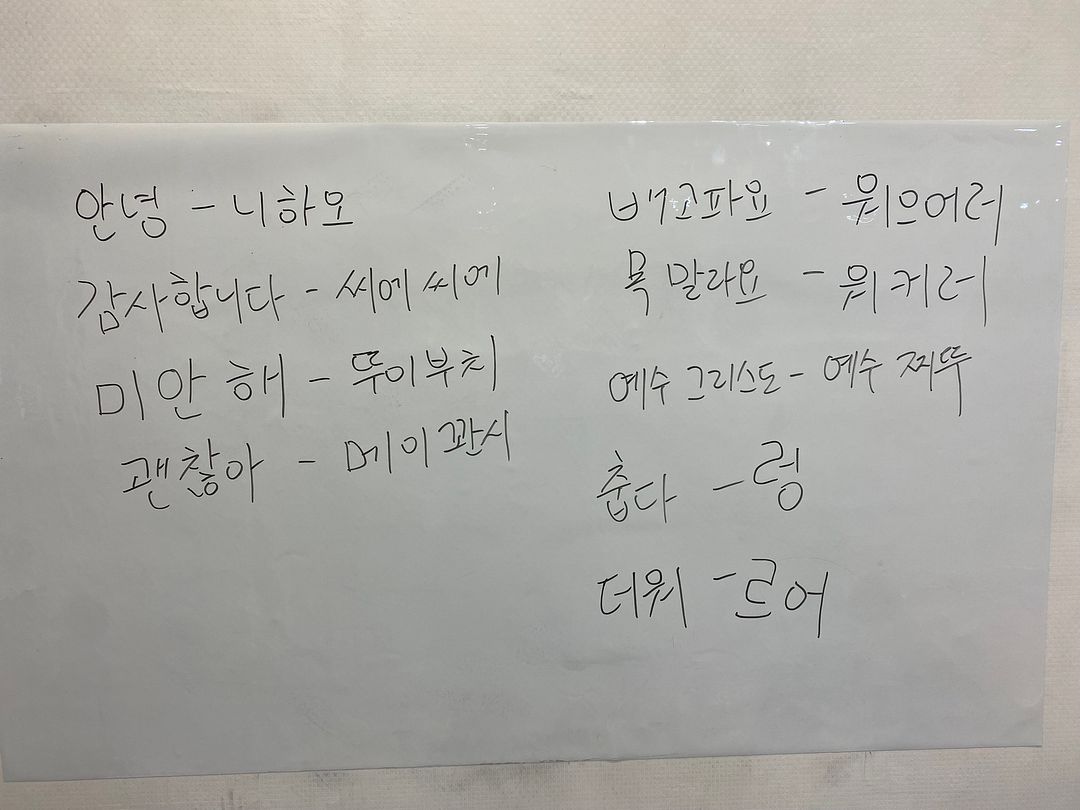 안녕 - 니하오
감사합니다 - 씨에 씨에
미안해 - 뚜이부치
괜찮아 - 메이꽌시
배고파요 - 워으어러
목말라요 - 워커러
예수 그리스도 - 예수 찌뚜
춥다 - 렁
더워 - 르어